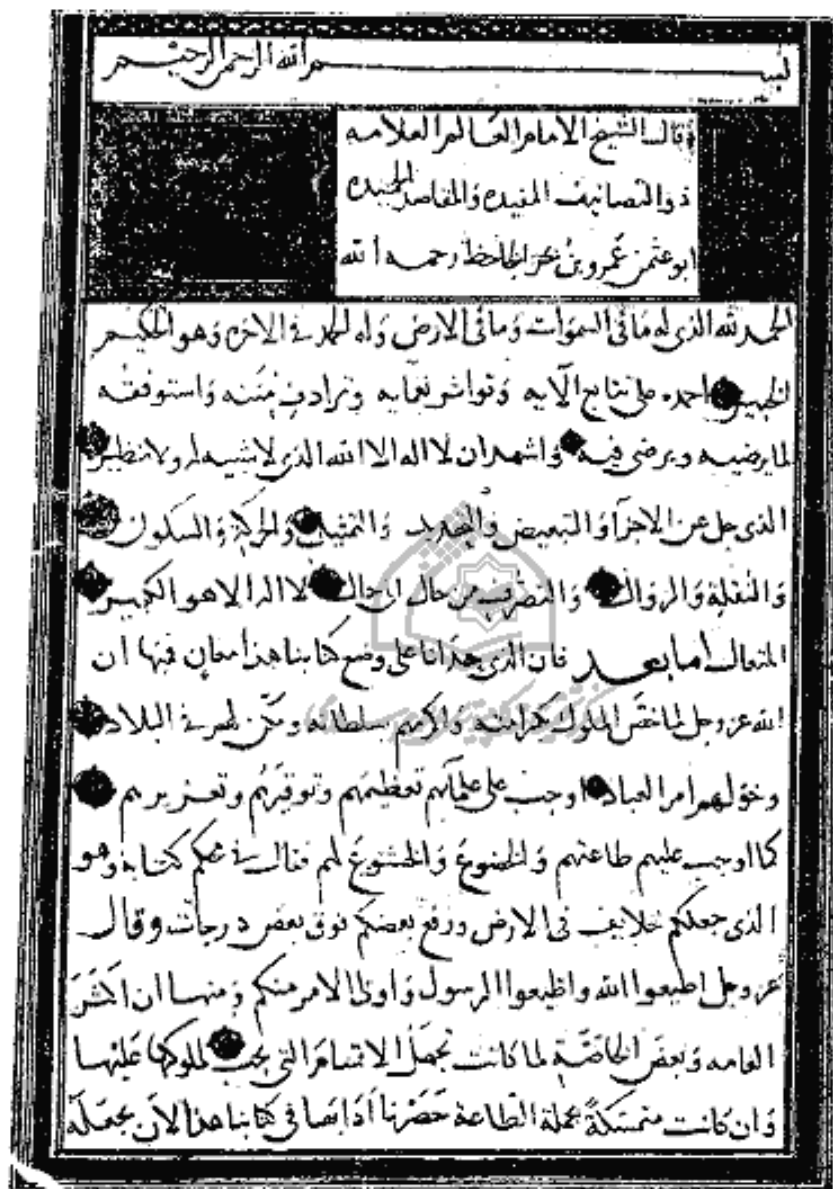 بسم الله الرحمن الرحيم
قال الشيخ الامام العالم العلامه
ذو التصانيف المفيده والمقاصد الحميده
ابو عثمن عمرو بن بحر الجاحظ رحمه الله
الحمد لله الذى له ما فى السموات وما فى الارض وله الحمد فى الاخره وهو الحكيم
الخبير احمده على تتابع آلايه وتواتر نعمايه وترادف مننه واستوفقه
لما يرضيه ويرضى فيه واشهد ان لا اله الا الله الذى لا شبيه له ولا نظير
الذى جل عن الاجزآ والتبعيض والتحديد والتمثيل والحركة والسكون
والنقلة والزوال والتصرف من حال الى حال لا اله الا هو الكبير
المتعال اما بعد فان الذى حدانا على وضع كتابنا هذا معان فيها ان
الله عز وجل لما خص الملوك بكرامته واكرمهم بسلطانه ومكن لهم فى البلاد
وخولهم امر العباد اوجب على علمآيهم تعظيمهم وتوقيرهم وتعزيرهم
كما اوجب عليهم طاعتهم والخضوع والخشوع لهم فقال فى محكم كتابه وهو
الذى جعلكم خلايف فى الارض ورفع بعضكم فوق بعض درجات وقال
عز وجل اطيعوا الله واطيعوا الرسول واولى الامر منكم ومنها ان اكثر
العامه وبعض الخاصة لما كانت تجهل الاقسام التى يجب لملوكها عليها
وان كانت متمسكة بجملة الطاعة حصرنا آدابها فى كتابنا هذا الآن بجعله